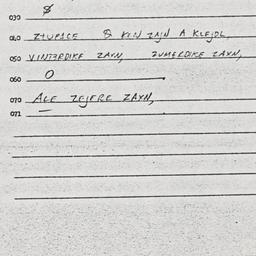 030
040 8 ZAJN A KLEJDL,
050 VINTERDIKE ZAYN, ZUMERDIKE ZAYN,
060 O
070 ALE ZEJERE ZAYN,
071